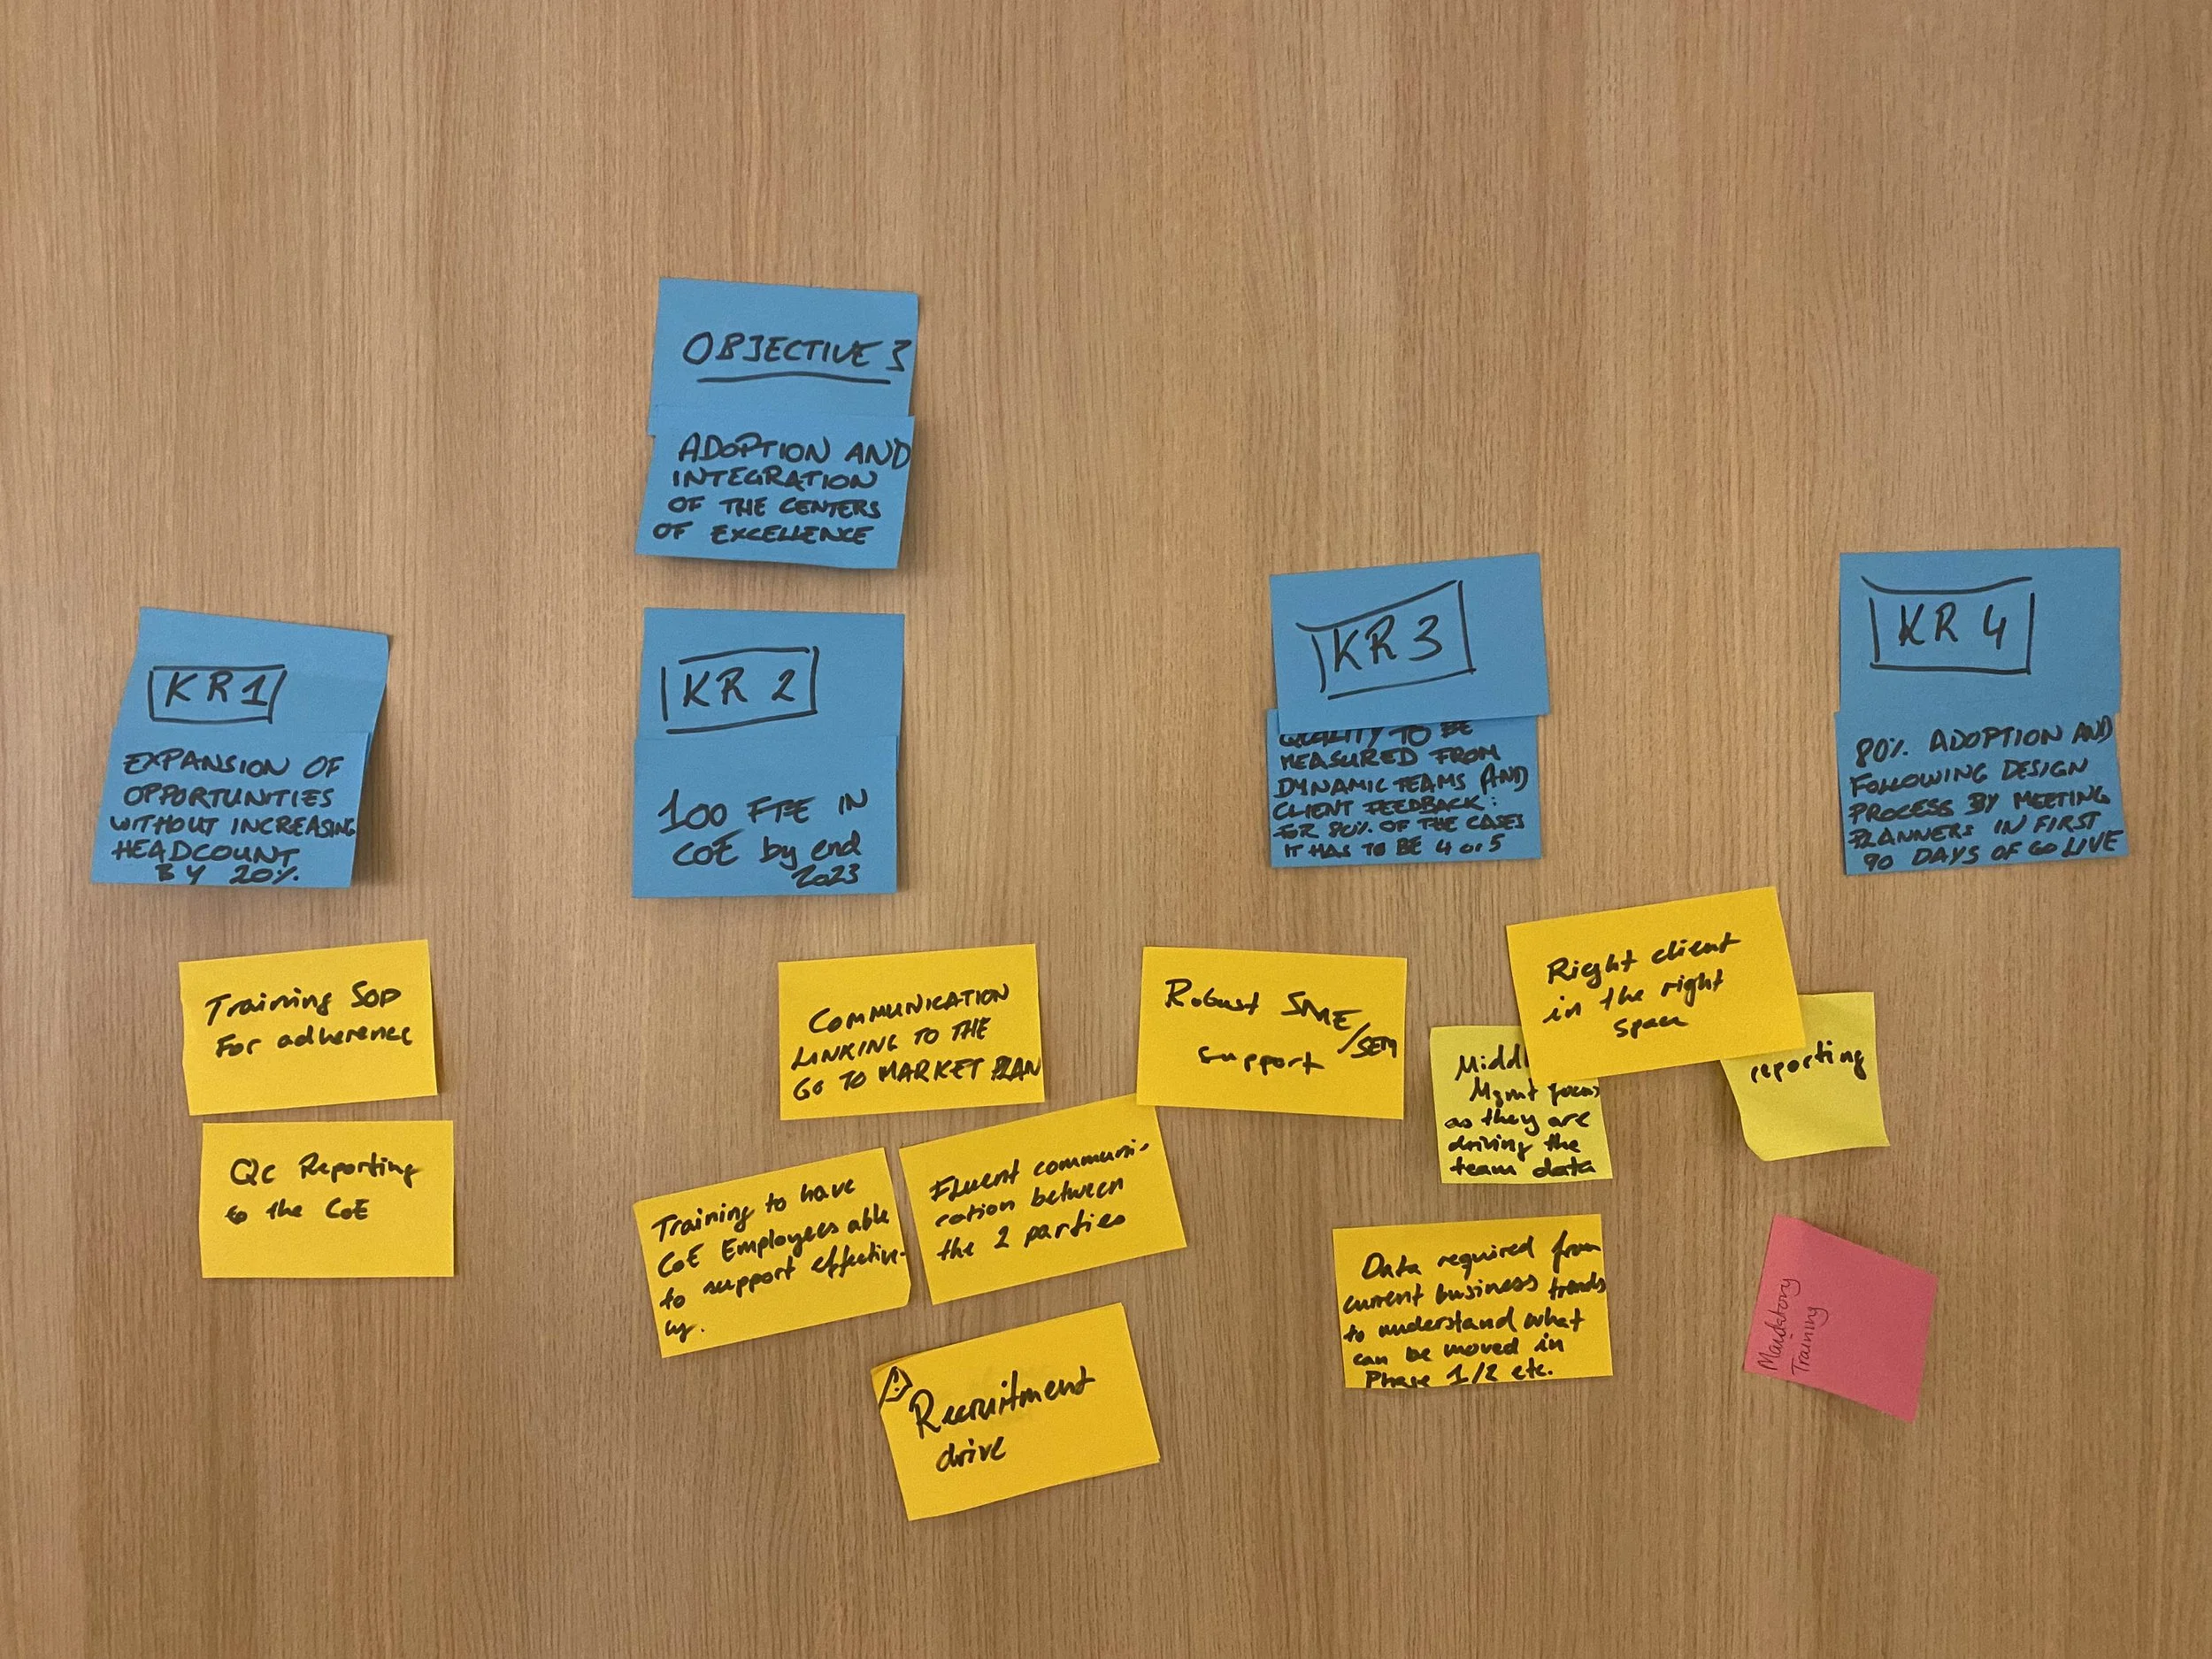 OBJECTIVE 3
ADOPTION AND
INTEGRATION
OF THE CENTERS
OF EXCELLENCE
KR1
EXPANSION OF
OPPORTUNITIES
WITHOUT INCREASING
HEADCOUNT
BY 20%
KR 2
100 FTE IN
COE by end
2023
KR 3
QUALITY TO BE
MEASURED FROM
DYNAMIC TEAMS AND
CLIENT FEEDBACK:
FOR 80% OF THE CASES
IT HAS TO BE 4 or 5
KR 4
80% ADOPTION AND
FOLLOWING DESIGN
PROCESS BY MEETING
PLANNERS IN FIRST
90 DAYS OF GO LIVE
Training SOP
For adherence
Qc Reporting
to the CoE
COMMUNICATION
LINKING TO THE
GO TO MARKET PLAN
Training to have
CoE Employees able
to support effective-
ly.
Fluent communi-
cation between
the 2 parties
Recruitment
drive
Robust SME/SEM
support
Middl
Mgmt focus
as they are
driving the
team data
Right client
in the right
space
reporting
Data required from
current business trends
to understand what
can be moved in
Phase 1/2 etc.
Mandatory
Training